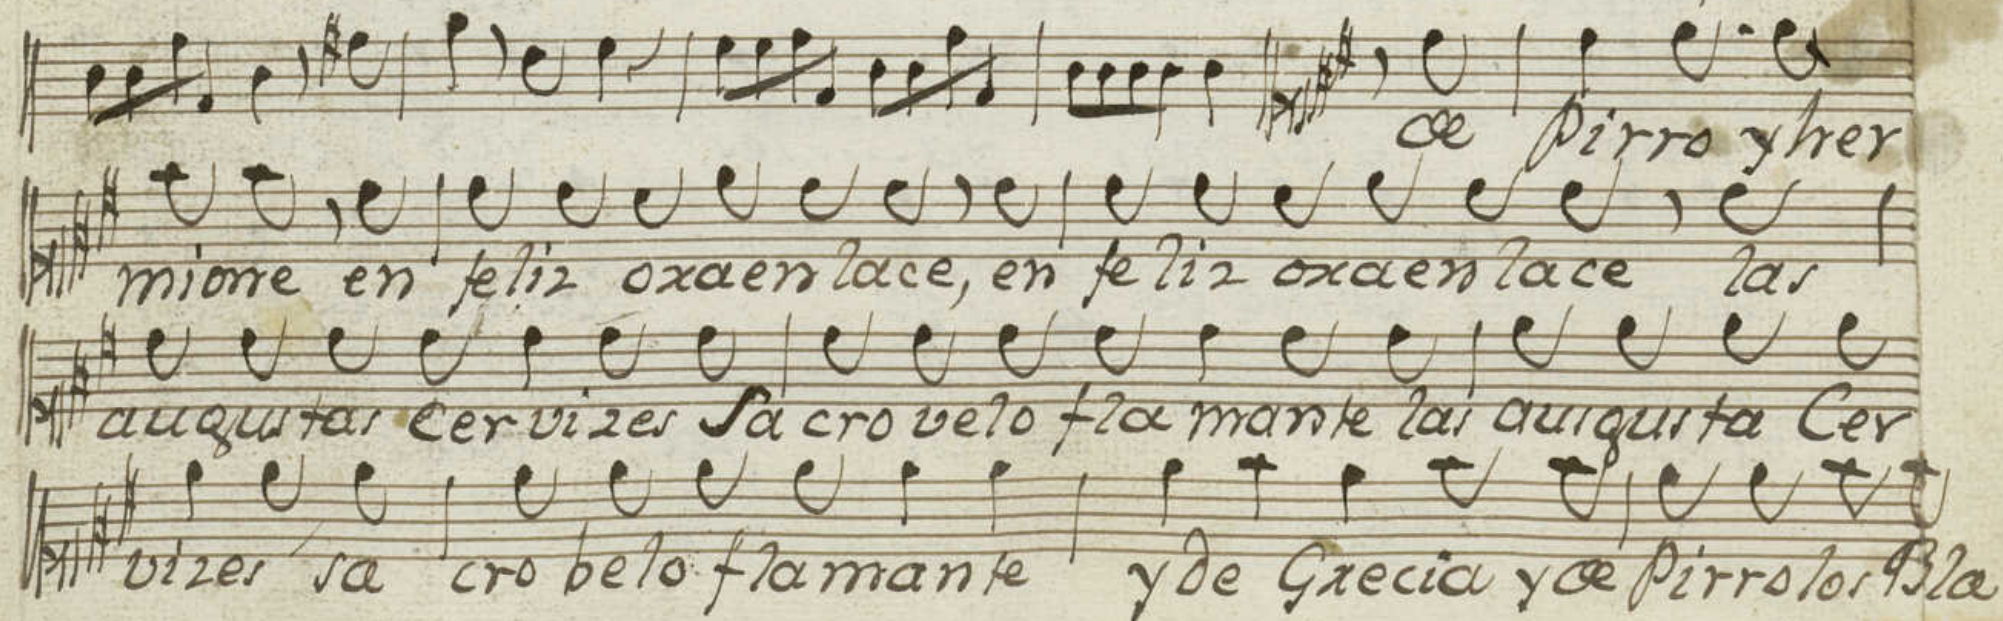 de Pirro y her
mione en feliz oxa en lace, en fe liz oxa en lace las
augustas Cer vizes Sa cro velo fla mante las ausgusta Cer
vizes sa cro belo fla man te y de Grecia y de Pirro los Bla